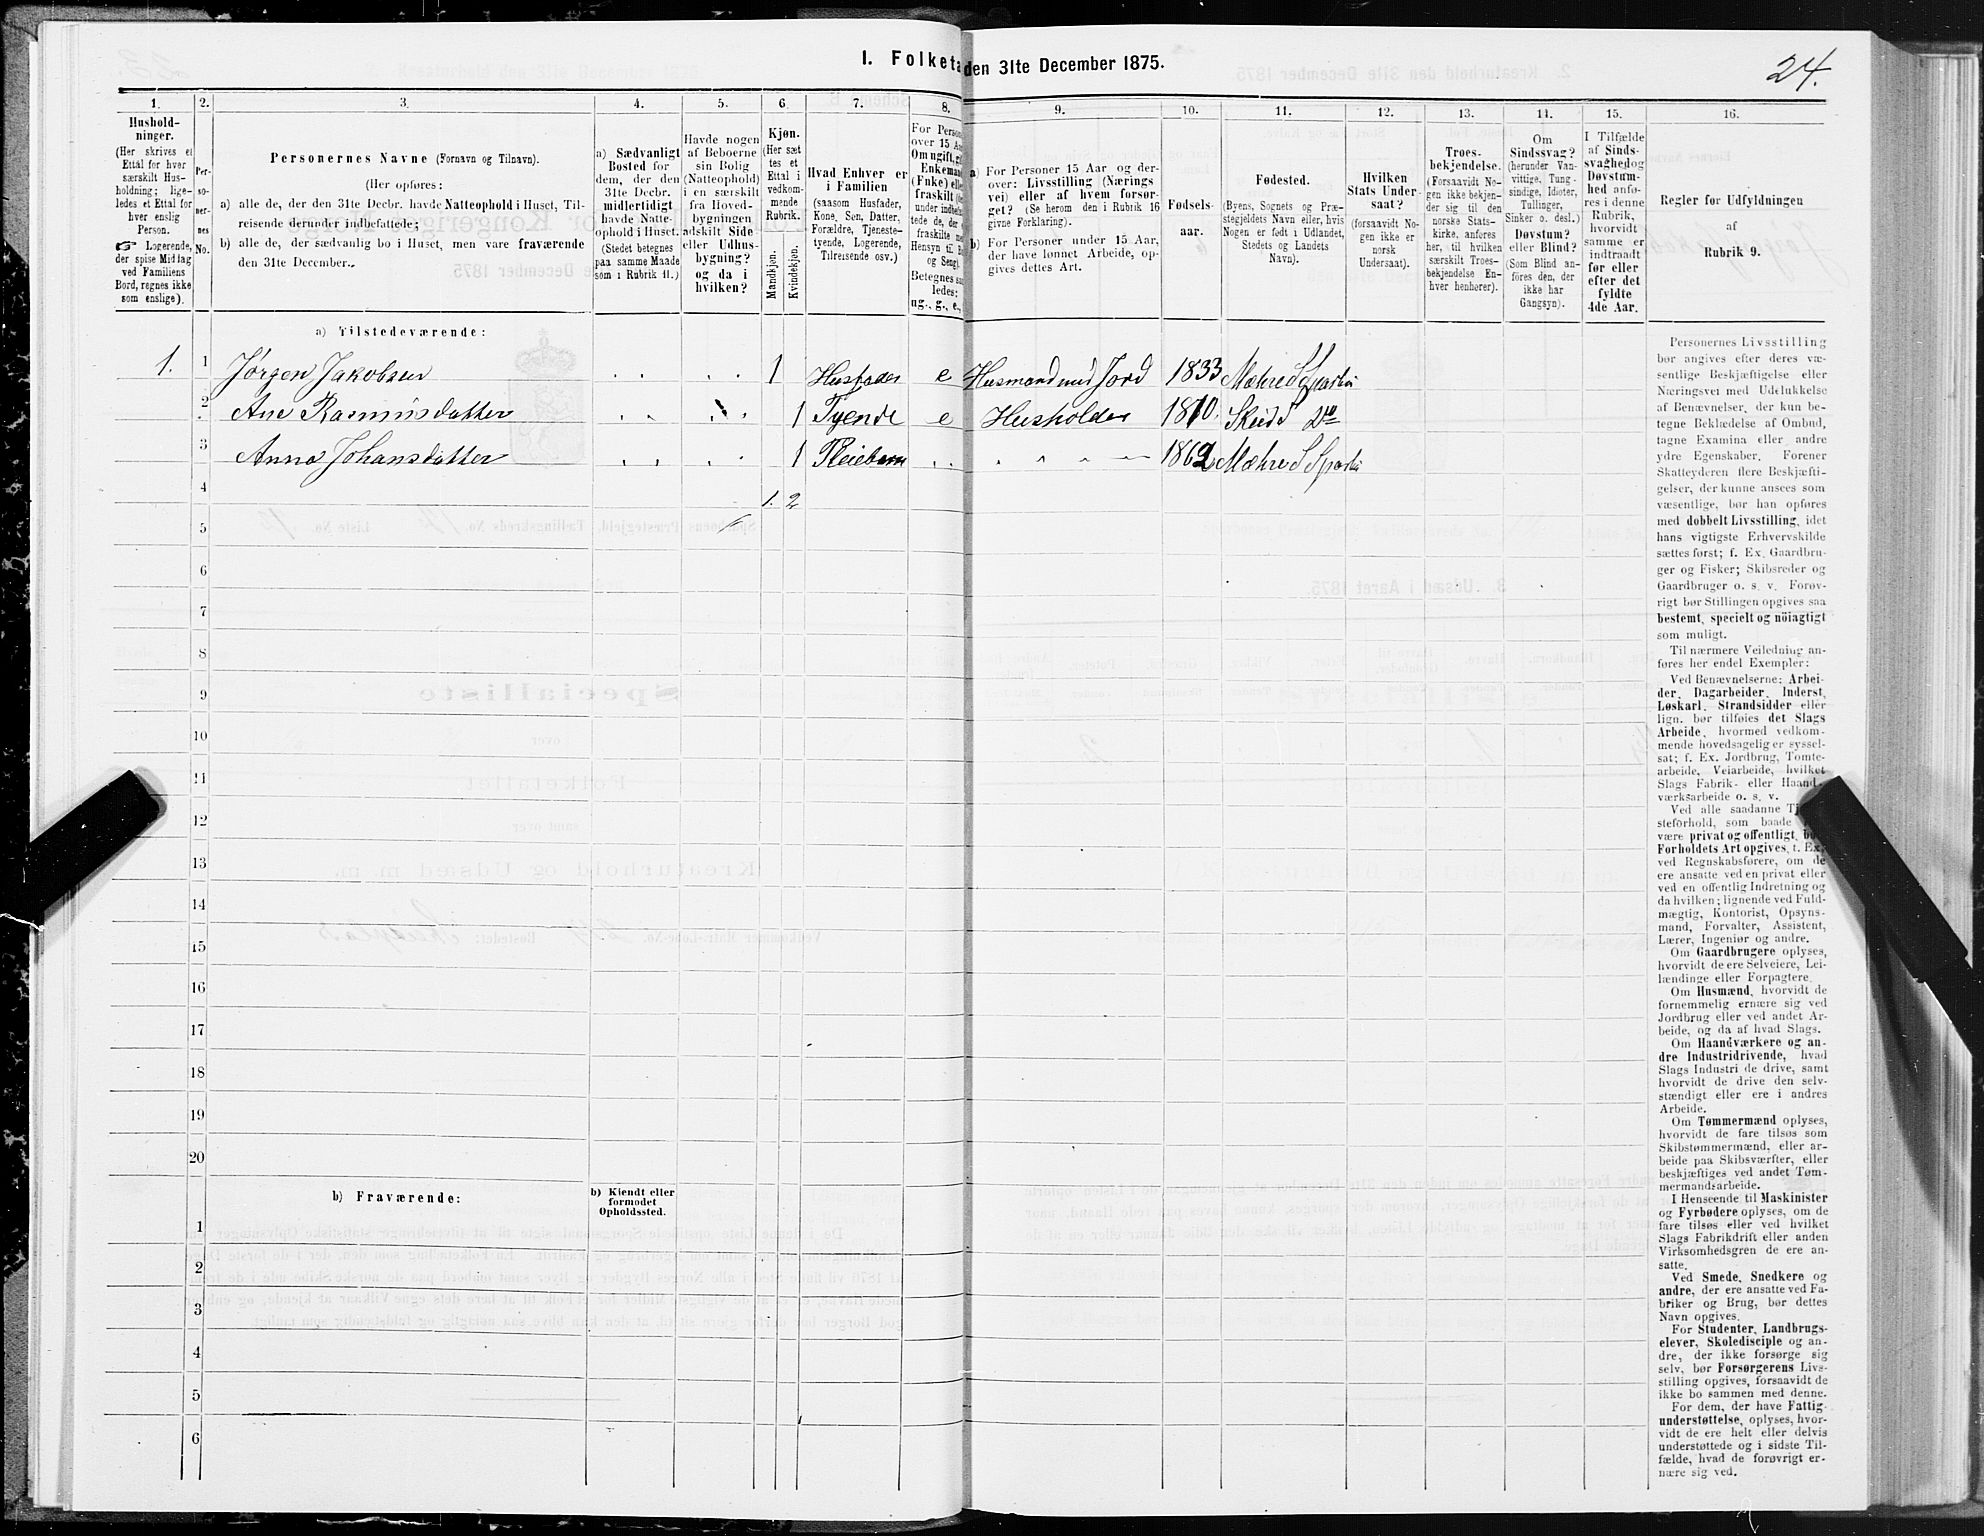 24.
I. Folketa den 31te December 1875.
1. 2. 3. 4. 5. 6. 7. 8. 9. 10. 11. 12. 13. 14. 15. 16.
Hushold-
ninger.
(Her skrives et
Ettal for hver
særskilt Hus-
holdning; lige-
ledes et Ettal for
hver enslig
Person.
☞ Logerende,
der spise Middag
ved Familiens
Bord, regnes ikke
som enslige).
Per-
so-
ner-
nes
No.
Personernes Navne (Fornavn og Tilnavn).
(Her opføres:
a) alle de, der den 31te Decbr. havde Natteophold i Huset, Til-
reisende derunder indbefattede;
b) alle de, der sædvanlig bo i Huset, men vare fraværende
den 31te December.
a) Sædvanligt
Bosted for
dem, der den
31te Decbr.
midlertidigt
havde Natte-
ophold i Huset.
(Stedet betegnes
paa samme Maade
som i Rubrik 11.)
Havde nogen
af Beboerne
sin Bolig
(Natteophold)
i en særskilt
fra Hoved-
bygningen
adskilt Side
eller Udhus-
bygning?
og da i
hvilken?
Kjøn.
(Her sæt
tes et
Ettal i
vedkom-
mende
Rubrik.
Mandkjøn.
Kvindekjøn.
Hvad Enhver er
i Familien
(saasom Husfader,
Kone, Søn, Datter,
Forældre, Tjeneste-
tyende, Logerende,
Tilreisende osv.)
For Persone
over 15 Aa
Om ugift, gi
Enkeman
(Fnke) elle
fraskilt (
under indbefat
tede de, der
fraskilte me
Hensyn til Bo
og Seng).
Betegnes saa
ledes:
ug., g., e.,
a) For Personer 15 Aar og der-
over: Livsstilling (Nærings
vei) eller af hvem forsør-
get? (Se herom den i Rubrik 16
givne Forklaring).
b) For Personer under 15 Aar,
der have lønnet Arbeide, op-
gives dettes Art.
Fødsels-
aar.
Fødested.
(Byens, Sognets og Præ-
stegjeldets Navn eller, hvis
Nogen er født i Udlandet,
Stedets og Landets
Navn).
Hvilken
Stats Under-
saat?
(forsaavidt No-
gen ikke er
norsk
Undersaat).
Troes-
bekjendelse.
(Forsaavidt No-
gen ikke bekjen-
der sig til den
norske Stats-
kirke, anføres
her, til hvilken
særskilt Troes-
bekjendelse En-
hver henhører).
Om
Sindssvag?
(herunder Van-
vittige, Tung-
sindige, Idioter,
Tullinger,
Sinker o. desl.)
Døvstum?
eller Blind?
(Som Blind an-
føres den, der
ikke har
Gangsyn).
I Tilfælde
af Sinds-
svaghedog
Døvstum-
hed anfø-
res i denne
Rubrik,
hvorvidt
samme er
indtraadt
før eller
efter det
fyldte
4de Aar.
Regler for Udfyldningen
af
Rubrik 9.
a) Tilstedeværende:
1. 1 Jørgen Jakobsen 1 Husfader e Husmand med Jord 1833 Mæhre S Sparbu
2 Ane Rasmusdatter 1 Tyende e Husholder 1810. Skeid S Do
3 Anna Johansdatter 1 Pleiebarn 1862 Mæhre S Sparbu
4 1. 2
5
6
7
8
9
10
11
12
13
14
15
16
17
18
19
20
b) Fraværende:
b) Kjendt eller
formodet
Opholdssted.
1
2
3
4
5
6
Personernes Livsstilling
bør angives efter deres væ-
sentlige Beskjæftigelse eller
Næringsvei med Udelukkelse
af Benævnelser, der kun be-
tegne Beklædelse af Ombud,
tagne Examina eller andre
ydre Egenskaber. Forener
Skatteyderen flere Beskjæfti-
gelser, der kunne ansees som
væsentlige, bør han opføres
med dobbelt Livsstilling, idet
hans vigtigste Erhvervskilde
sættes først; f. Ex. Gaardbru-
ger og Fisker; Skibsreder og
Gaardbruger o. s. v. Forøv-
rigt bør Stillingen opgives saa
bestemt, specielt og nöiagtigt
som muligt.
Til nærmere Veiledning an-
føres her endel Exempler:
Ved Benævnelserne: Arbei-
der, Dagarbeider, Inderst,
Løskarl, Strandsidder eller
lign. bør tilføies det Slags
Arbeide, hvormed vedkom-
mende hovedsagelig er syssel-
sat; f. Ex. Jordbrug, Tomte-
arbeide, Veiarbeide, hvilket
Slags Fabrik- eller Haand-
værksarbeide o. s. v.
Ved alle saadanne Tj
steforhold, som baade
være privat og offentligt, bø
Forholdets Art opgives, t. Ex
ved Regnskabsførere, om de
ere ansatte ved en privat eller
ved en offentlig Indretning og
da hvilken; lignende ved Fuld-
mægtig, Kontorist, Opsyns-
mand, Forvalter, Assistent,
Lærer, Ingeniør og andre.
Om Gaardbrugere oplyses,
hvorvidt de ere Selveiere, Lei-
lændinge eller Forpagtere.
Om Husmænd, hvorvidt de
fornemmelig ernære sig ved
Jordbrug eller ved andet Ar-
beide, og da af hvad Slags.
Om Haandværkere og an-
dre Industridrivende, hvad
Slags Industri de drive, samt
hvorvidt de drive den selv-
stændigt eller ere i andres
Arbeide.
Om Tømmermænd oplyses,
hvorvidt de fare tilsøs som
Skibstømmermænd, eller ar-
beide paa Skibsværfter, eller
beskjæftiges ved andet Tøm-
mermandsarbeide.
I Henseende til Maskinister
og Fyrbødere oplyses, om de
fare tilsøs eller ved hvilket
Slags Fabrikdrift eller anden
Virksomhedsgren de ere an-
satte.
Ved Smede, Snedkere og
andre, der ere ansatte ved Fa-
briker og Brug, bør dettes
Navn opgives.
For Studenter, Landbrugs-
elever, Skoledisciple og an-
dre, der ikke forsørge sig
selv, bør Forsørgerens Livs-
stilling opgives, forsaavidt de
ikke bo sammen med denne.
For dem, der have Fattig-
understøttelse, oplyses, hvor-
vidt de ere helt eller delvis
understøttede og i sidste Til-
fælde, hvad de forøvrigt er-
nære sig ved.